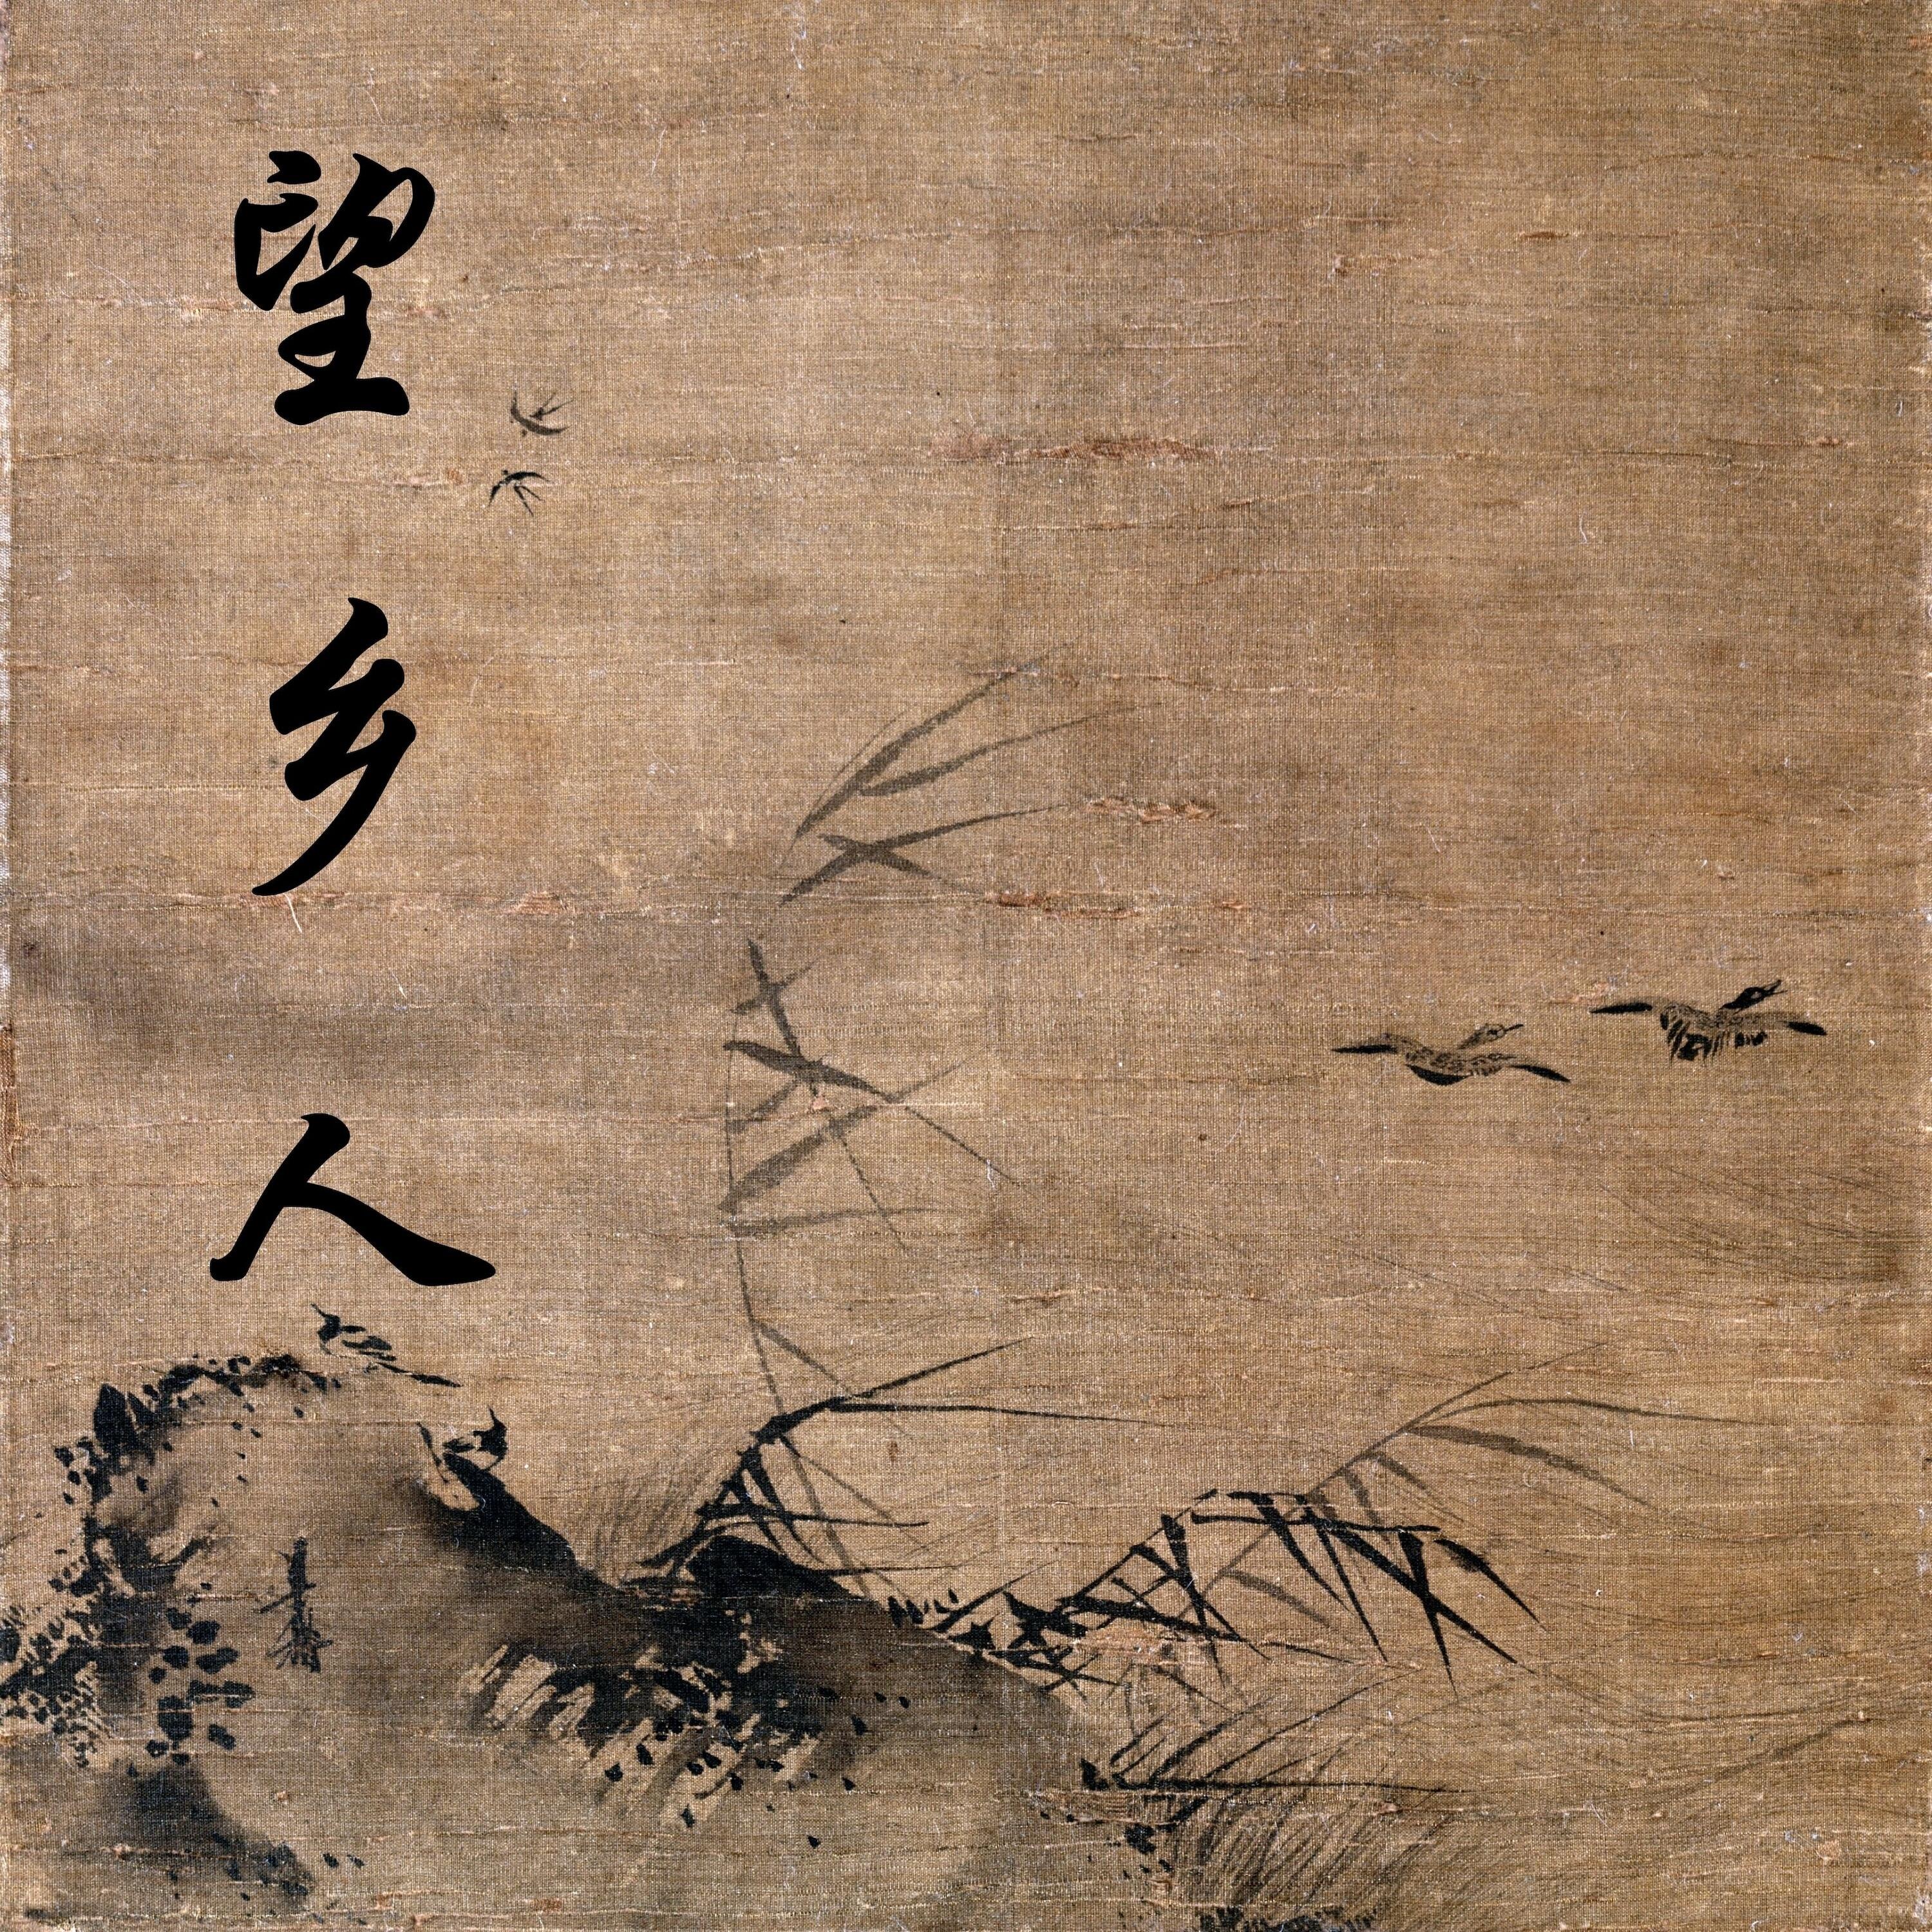 望乡人